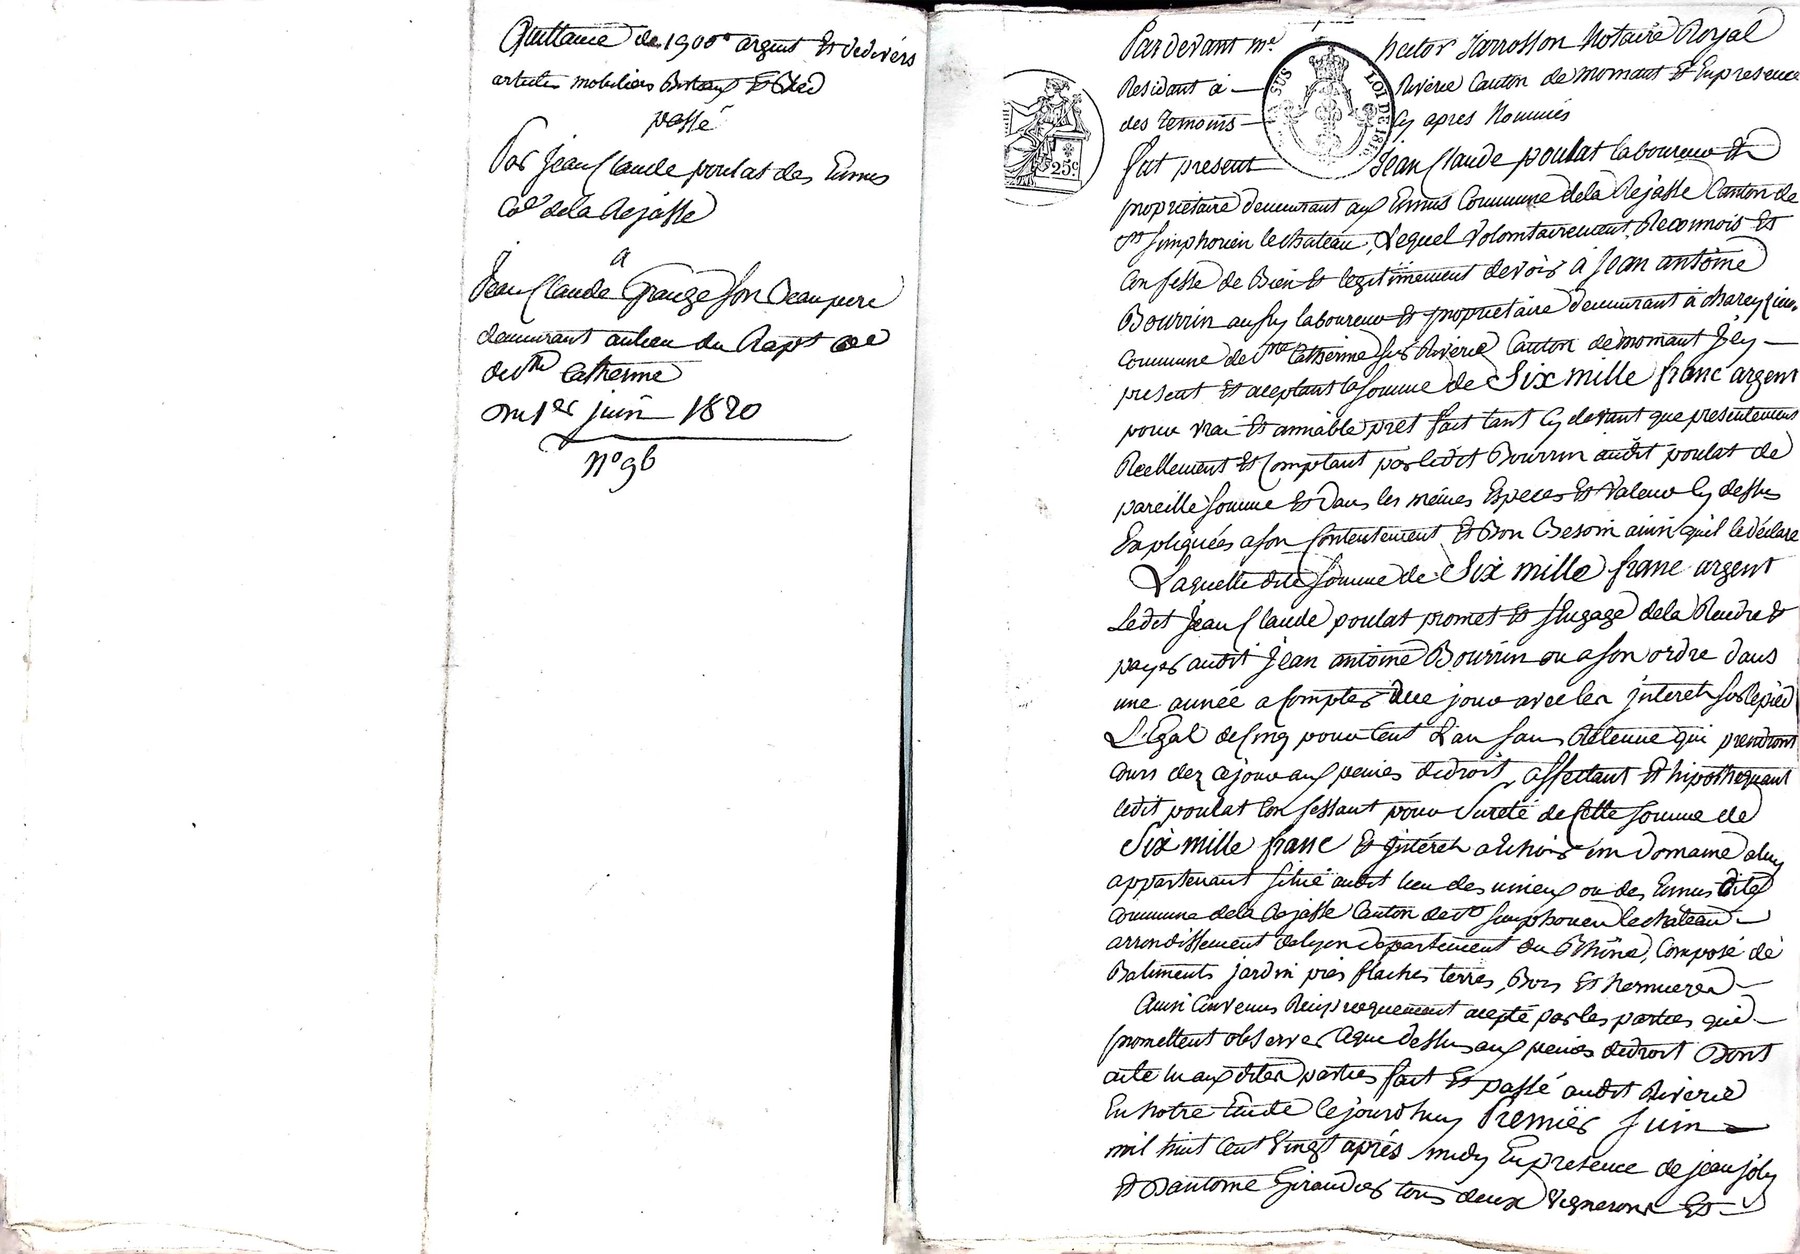 Quittance de 1900 argent Et dedivers
articles mobiliers Bestiaux Et Bled
passé
Par Jean Claude poulat des Eumus
Coe dela Rejasse
a
Jean Claude Grange son Beaupere
demeurant aulieu du
de Ste Catherine
du 1er juin 1820
No 96
Pardevant me hector Jarrosson Notaire Royal
Residant à Riverie Canton de mornant Et Enpresence
des temoins Cy apres Nommés
fut present Jean Claude poulat laboureur Et
propriétaire demeurant aux Eumus Commune dela Rejasse Canton de
St simphorien lechateau, Lequel Volontairement, Reconnois Et
Confesse de Bien Et legitimement devoir à Jean antoine
Bourrin aussy laboureur Et propriétaire demeurant à
commune de Ste Catherine sur Riverie Canton de mornant Icy
present Et aceptant la somme de Six mille franc argent
pour vrai Et amiable pret fait tant Cy devant que presentement
Reellement Et Comptant par ledit Bourrin audit poulat de
pareille somme Et dans les mêmes Especes Et Valeur Cy dessus
Expliquées a son Contentement Et Bon Besoin ainsi quil ledéclare
Laquelle dite somme de Six mille franc argent
Ledit Jean Claude poulat promet Et sEngage dela Rendre Et
payer audit Jean antoine Bourrin ou a son ordre dans
une année a Compter dece jour avec les interets sur lepied
LEgal de Cinq pour Cent Lan sans Retenue qui prendront
Cours dez cejour aux peines dedroit, affectant Et hipothequant
ledit poulat Confessant pour Sureté de Cette somme de
Six mille franc Et interets a Echoir un Domaine aluy
appartenant situé audit lieu des ou des Eumus dite
Commune dela Rejasse Canton de St simphorien lechateau
arrondissement delyon departement du Rhône, Composé de
Batiments jardin prés flaches terres, Bois Et hermures
Ainsi Convenus Reciproquement acepté par les parties qui
promettent observer Ceque dessus aux peines dedroit Dont
acte lu aux dites parties fait Et passé audit Riverie
En Notre Etude Cejourdhuy Premier Juin
mil huit Cent Vingt après midy Enpresence de jean joly
Et Dantoine Giraudier tous deux Vignerons Et